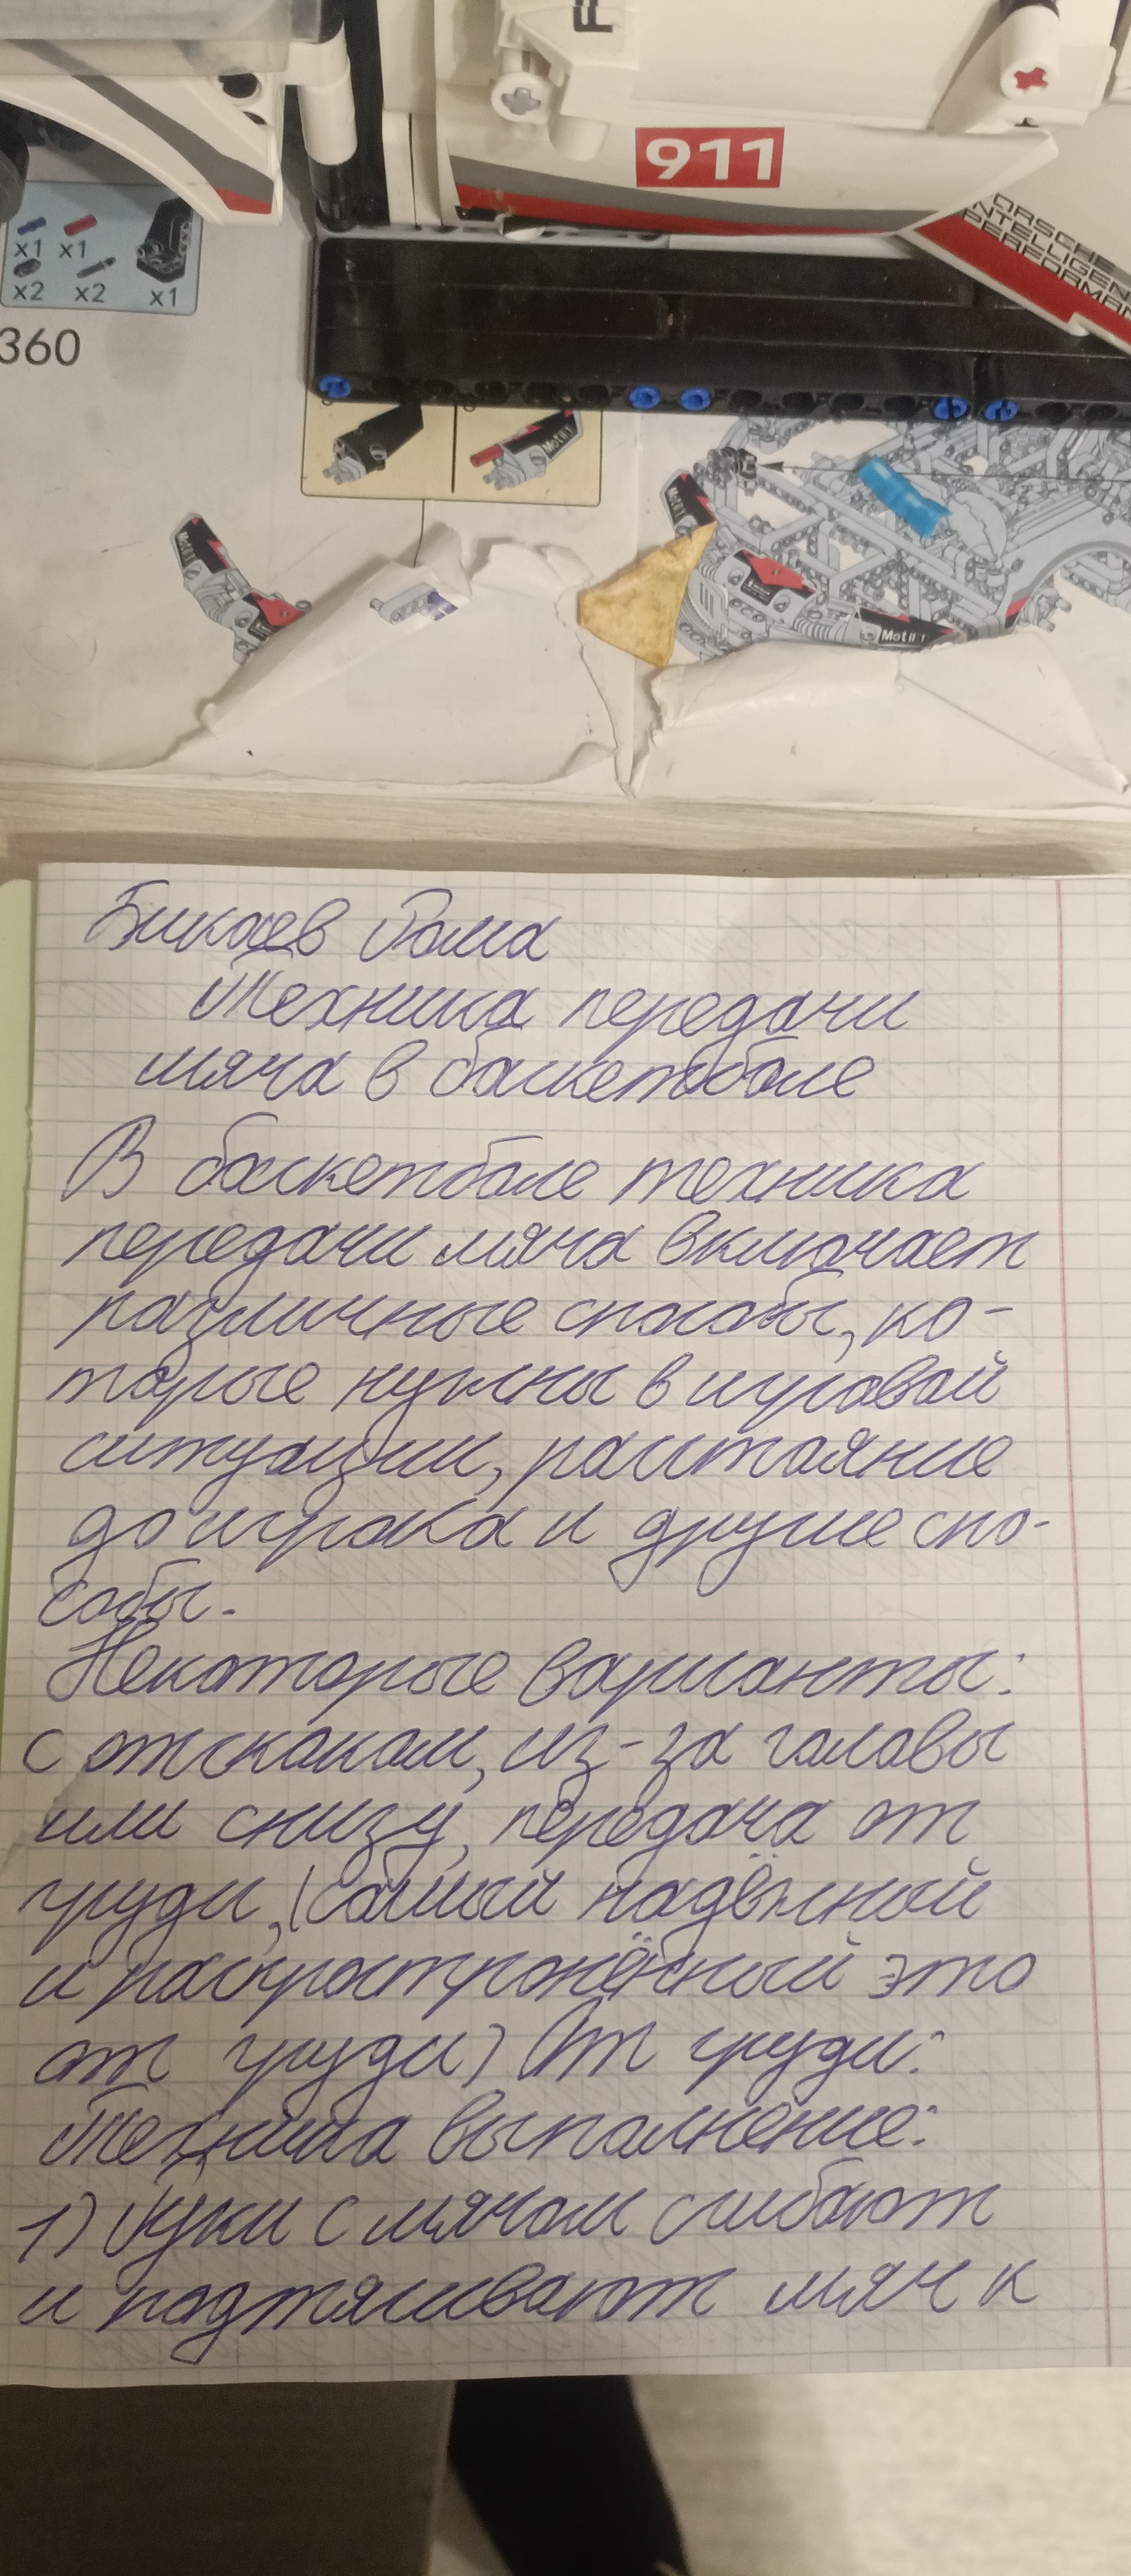 F
911
PORSCHE
INTELLIGENT
PERFORMAN
x1 x1
x2 x2 x1
360
Motul
Motul
Motul
Motul
Бикаев Рома
Техника передачи
мяча в баскетболе
В баскетболе техника
передачи мяча включает
различные способы, ко-
торые нужны в игровой
ситуации, расстояние
до игрока и другие спо-
собы.
Некоторые варианты:
с отскоком, из-за головы
или снизу, передача от
груди, (самый надёжный
и распространённый это
от груди) От груди:
Техника выполнение:
1) Руки с мячом сгибают
и подтягивают мяч к